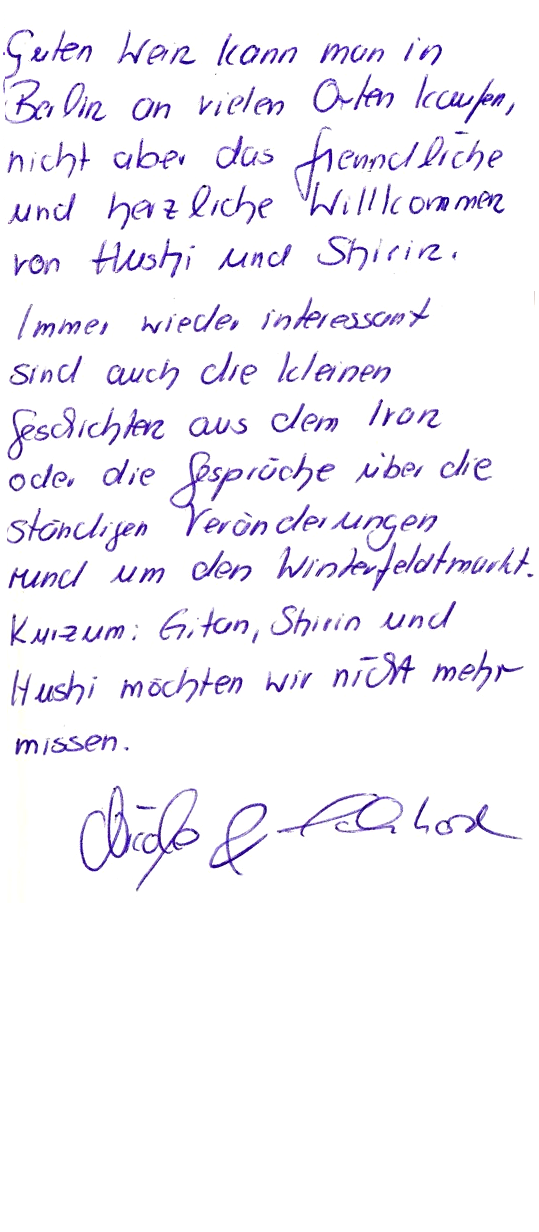 Guten Wein kann man in
Berlin an vielen Orten kaufen,
nicht aber das freundliche
und herzliche Willkommen
von Hushi und Shirin.
Immer wieder interessant
sind auch die kleinen
Geschichten aus dem Iran
oder die Gespräche über die
ständigen Veränderungen
rund um den Winterfeldtmarkt.
Kurzum: Gitan, Shirin und
Hushi möchten wir nicht mehr
missen.
&